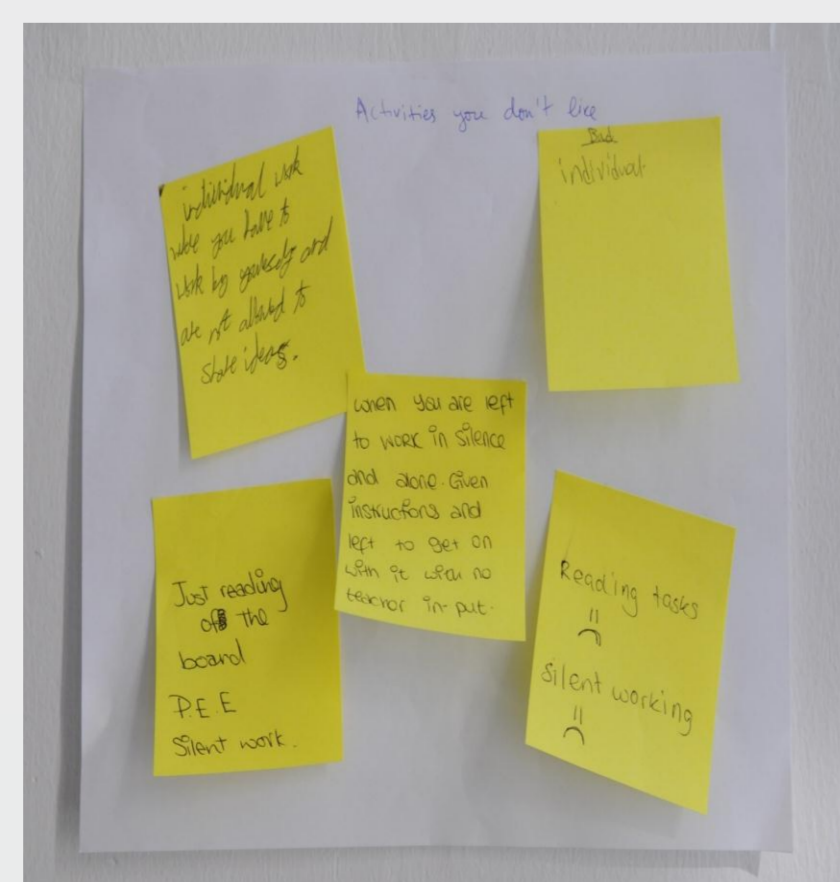 Activities you don't like
individual work
where you have to
work by yourself and
are not allowed to
share ideas.
Bad
individual.
when you are left
to work in silence
and alone. Given
instructions and
left to get on
with it with no
teacher in-put.
Just reading
of the
board
P.E.E
Silent work.
Reading tasks
silent working